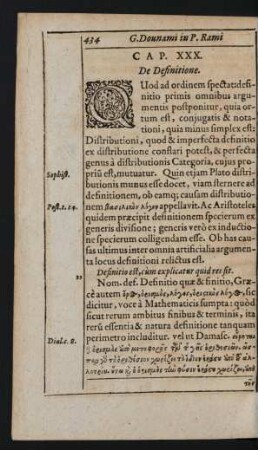 434 G. Dounami in P. Rami
CAP. XXX.
De Definitione.
QUod ad ordinem spectat: definitio primis omnibus argu-
mentis postponitur, quia
ortum est, conjugatis & nota-
tioni, quia minus simplex est:
Distributioni, quod & imperfecta definitio
ex distributione constari potest, & perfecta
genus à distributionis Categoria, cujus pro-
priũ est, mutuatur. Quin etjam Plato distri-
butionis munus esse docet, viam sternere ad
Sophist.
definitionem, ob eamq; causam distributio-
nem λόγον appellavit. Ac Aristoteles
Post.2.14.
quidem præcipit definitionem specierum ex
generis divisione; generis verò ex inductio-
ne specierum colligendam esse. Ob has cau-
sas ultimus inter omnia artificialia argumen-
ta locus definitioni relictus est.
Definitio est, cùm explicatur quid res sit.
„
Nom. def. Definitio quæ & finitio, Græ-
cè autem ὅρος, ὁρισμὸς, λόγος, sic
dicitur, voce à Mathematicis sumpta: quòd
sicut rerum ambitus finibus & terminis, ita
rerũ essentia & natura definitione tanquam
perimetro includitur. vel ut Damasc.
Dial. c. 8.
ὁ ὁρισμὸς